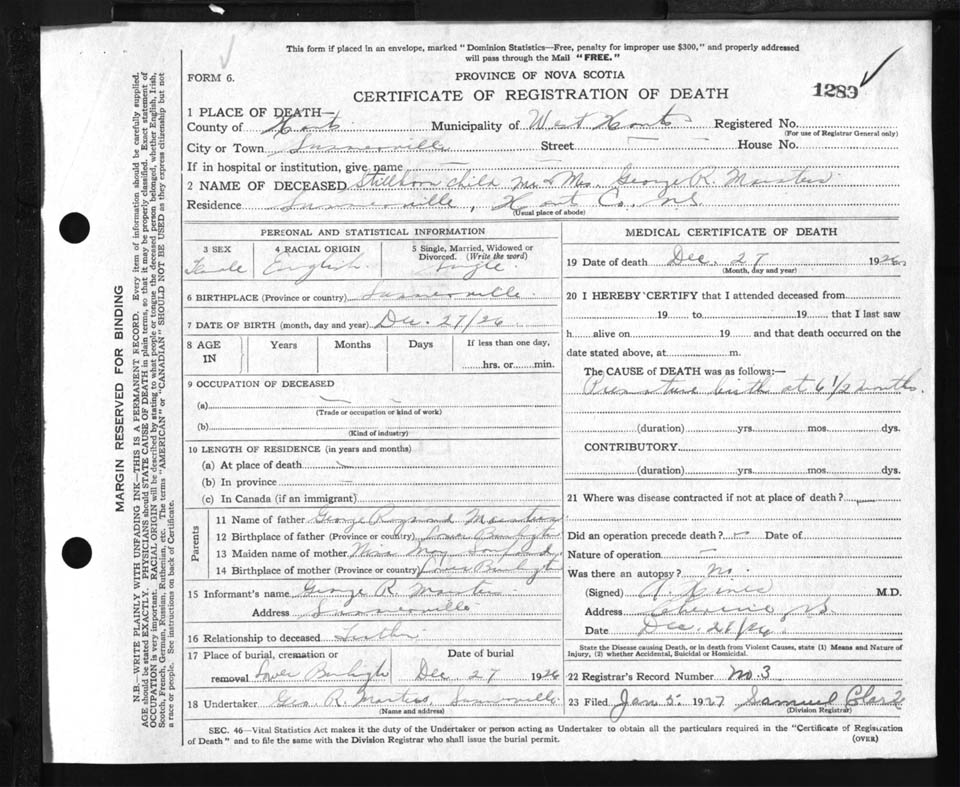 This form if placed in an envelope, marked "Dominion Statistics—Free, penalty for improper use $300," and properly addressed
will pass through the Mail "FREE."
FORM 6.
PROVINCE OF NOVA SCOTIA
CERTIFICATE OF REGISTRATION OF DEATH
1283
1 PLACE OF DEATH—
County of Hants Municipality of West Hants Registered No.
(For use of Registrar General only)
City or Town Summerville Street — House No.
If in hospital or institution, give name — —
2 NAME OF DECEASED Stillborn child Mr & Mrs. George R. Masters
Residence Summerville, Hants Co., N.S.
(Usual place of abode)
PERSONAL AND STATISTICAL INFORMATION
3 SEX 4 RACIAL ORIGIN 5 Single, Married, Widowed or
Divorced. (Write the word)
Female English Single
6 BIRTHPLACE (Province or country) Summerville
7 DATE OF BIRTH (month, day and year) Dec. 27/26
8 AGE IN Years Months Days If less than one day,
hrs. or min.
9 OCCUPATION OF DECEASED
(a) — —
(Trade or occupation or kind of work)
(b)
(Kind of industry)
10 LENGTH OF RESIDENCE (in years and months)
(a) At place of death —
(b) In province —
(c) In Canada (if an immigrant)
Parents
11 Name of father George Raymond Masters
12 Birthplace of father (Province or country) Lower Burlington
13 Maiden name of mother May Sanford
14 Birthplace of mother (Province or country) Lower Burlington
15 Informant's name George R. Masters
Address Summerville
16 Relationship to deceased Father
17 Place of burial, cremation or Date of burial
removal Lower Burlington Dec 27 1926
18 Undertaker Geo. R. Masters, Summerville
(Name and address)
MEDICAL CERTIFICATE OF DEATH
19 Date of death Dec. 27 1926
(Month, day and year)
20 I HEREBY CERTIFY that I attended deceased from
19 to 19, that I last saw
h alive on 19 and that death occurred on the
date stated above, at m.
The CAUSE of DEATH was as follows:—
Premature birth at 6 1/2 months.
(duration) yrs. mos. dys.
CONTRIBUTORY
(duration) yrs. mos. dys.
21 Where was disease contracted if not at place of death?
Did an operation precede death? — Date of
Nature of operation —
Was there an autopsy? No.
(Signed) M.D.
Address N.S.
Date Dec. 28/26
State the Disease causing Death, or in death from Violent Causes, state (1) Means and Nature of
Injury, (2) whether Accidental, Suicidal or Homicidal.
22 Registrar's Record Number No. 3
23 Filed Jan 5. 1927 Samuel
(Division Registrar)
SEC. 46—Vital Statistics Act makes it the duty of the Undertaker or person acting as Undertaker to obtain all the particulars required in the "Certificate of Registration
of Death" and to file the same with the Division Registrar who shall issue the burial permit.
(OVER)
MARGIN RESERVED FOR BINDING
N.B.—WRITE PLAINLY WITH UNFADING INK—THIS IS A PERMANENT RECORD. Every item of information should be carefully supplied.
AGE should be stated EXACTLY. PHYSICIANS should STATE CAUSE OF DEATH in plain terms, so that it may be properly classified. Exact statement of
OCCUPATION is very important. RACIAL ORIGIN will be described by stating to what people or tongue the deceased person belonged, whether English, Irish,
Scotch, French, German, Russian, Ruthenian, etc. The terms "AMERICAN" or "CANADIAN" SHOULD NOT BE USED as they express citizenship but not
a race or people. See instructions on back of Certificate.